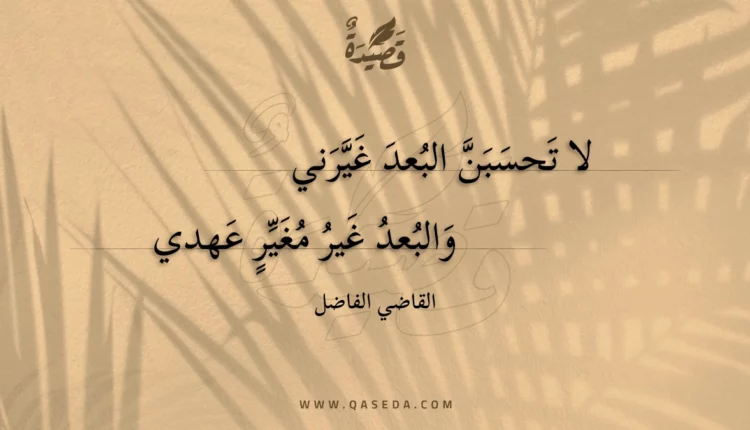 قَصِيدَةٌ
لا تَحسَبَنَّ البُعدَ غَيَّرَني
وَالبُعدُ غَيرُ مُغَيِّرٍ عَهدي
القاضي الفاضل
WWW.QASEDA.COM